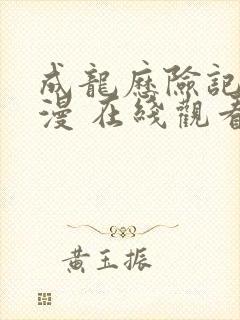 成龍歷險記
漫 在綫觀看
黄玉振